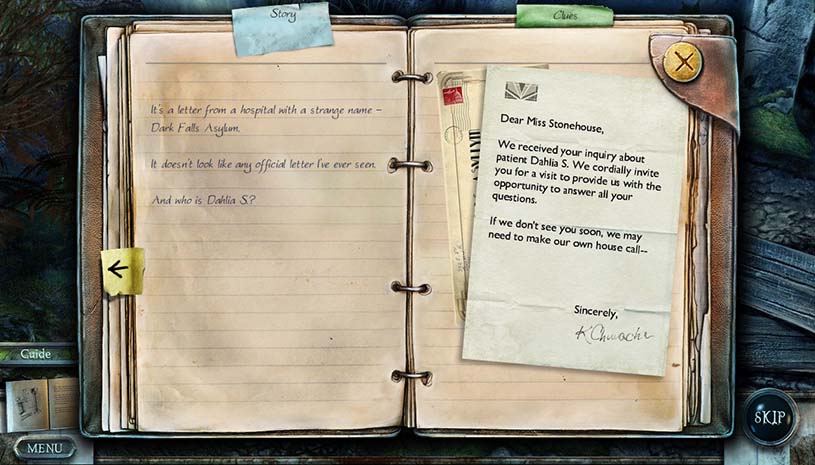 Story
Clues
It's a letter from a hospital with a strange name –
Dark Falls Asylum.
It doesn't look like any official letter I've ever seen.
And who is Dahlia S.?
Dear Miss Stonehouse,
We received your inquiry about
patient Dahlia S. We cordially invite
you for a visit to provide us with the
opportunity to answer all your
questions.
If we don't see you soon, we may
need to make our own house call--
Sincerely,
Guide
MENU
SKIP